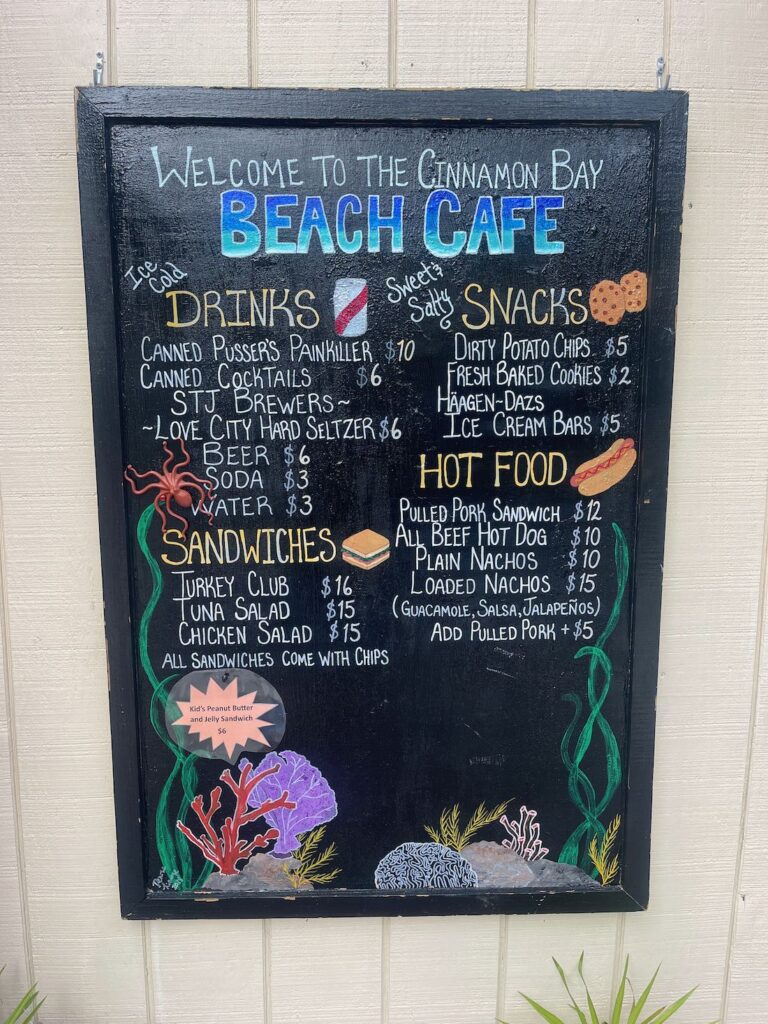 WELCOME TO THE CINNAMON BAY
BEACH CAFE
Ice
Cold
DRINKS
CANNED PUSSER'S PAINKILLER $10
CANNED COCKTAILS $6
STJ BREWERS~
~LOVE CITY HARD SELTZER $6
BEER $6
SODA $3
WATER $3
SANDWICHES
TURKEY CLUB $16
TUNA SALAD $15
CHICKEN SALAD $15
ALL SANDWICHES COME WITH CHIPS
Kid's Peanut Butter
and Jelly Sandwich
$6
Sweet &
Salty
SNACKS
DIRTY POTATO CHIPS $5
FRESH BAKED COOKIES $2
HÄAGEN-DAZS
ICE CREAM BARS $5
HOT FOOD
PULLED PORK SANDWICH $12
ALL BEEF HOT DOG $10
PLAIN NACHOS $10
LOADED NACHOS $15
(GUACAMOLE, SALSA, JALAPEÑOS)
ADD PULLED PORK +$5